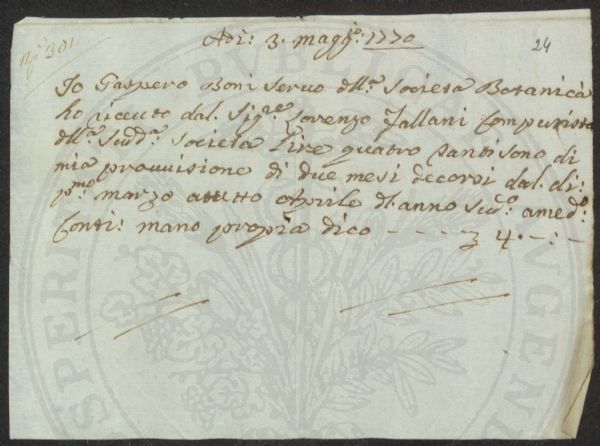 Adì: 3. magg:º: 1770
24
nº 301.
Io Gaspero Boni Servo dll:ª Societa Botanica
ho riceuto dal. Sig:re Lorenzo Fallani Computista
dll:ª Sud:ª Societa Lire quatro tanti sono di
mia provuisione di due mesi decorsi dal. di:
p:mo marzo atutto Aprile dl. anno Sud:º amed:º
Conti: mano propia dico - - - - 4. -:-
PUBLICA
SPERI
NGEND